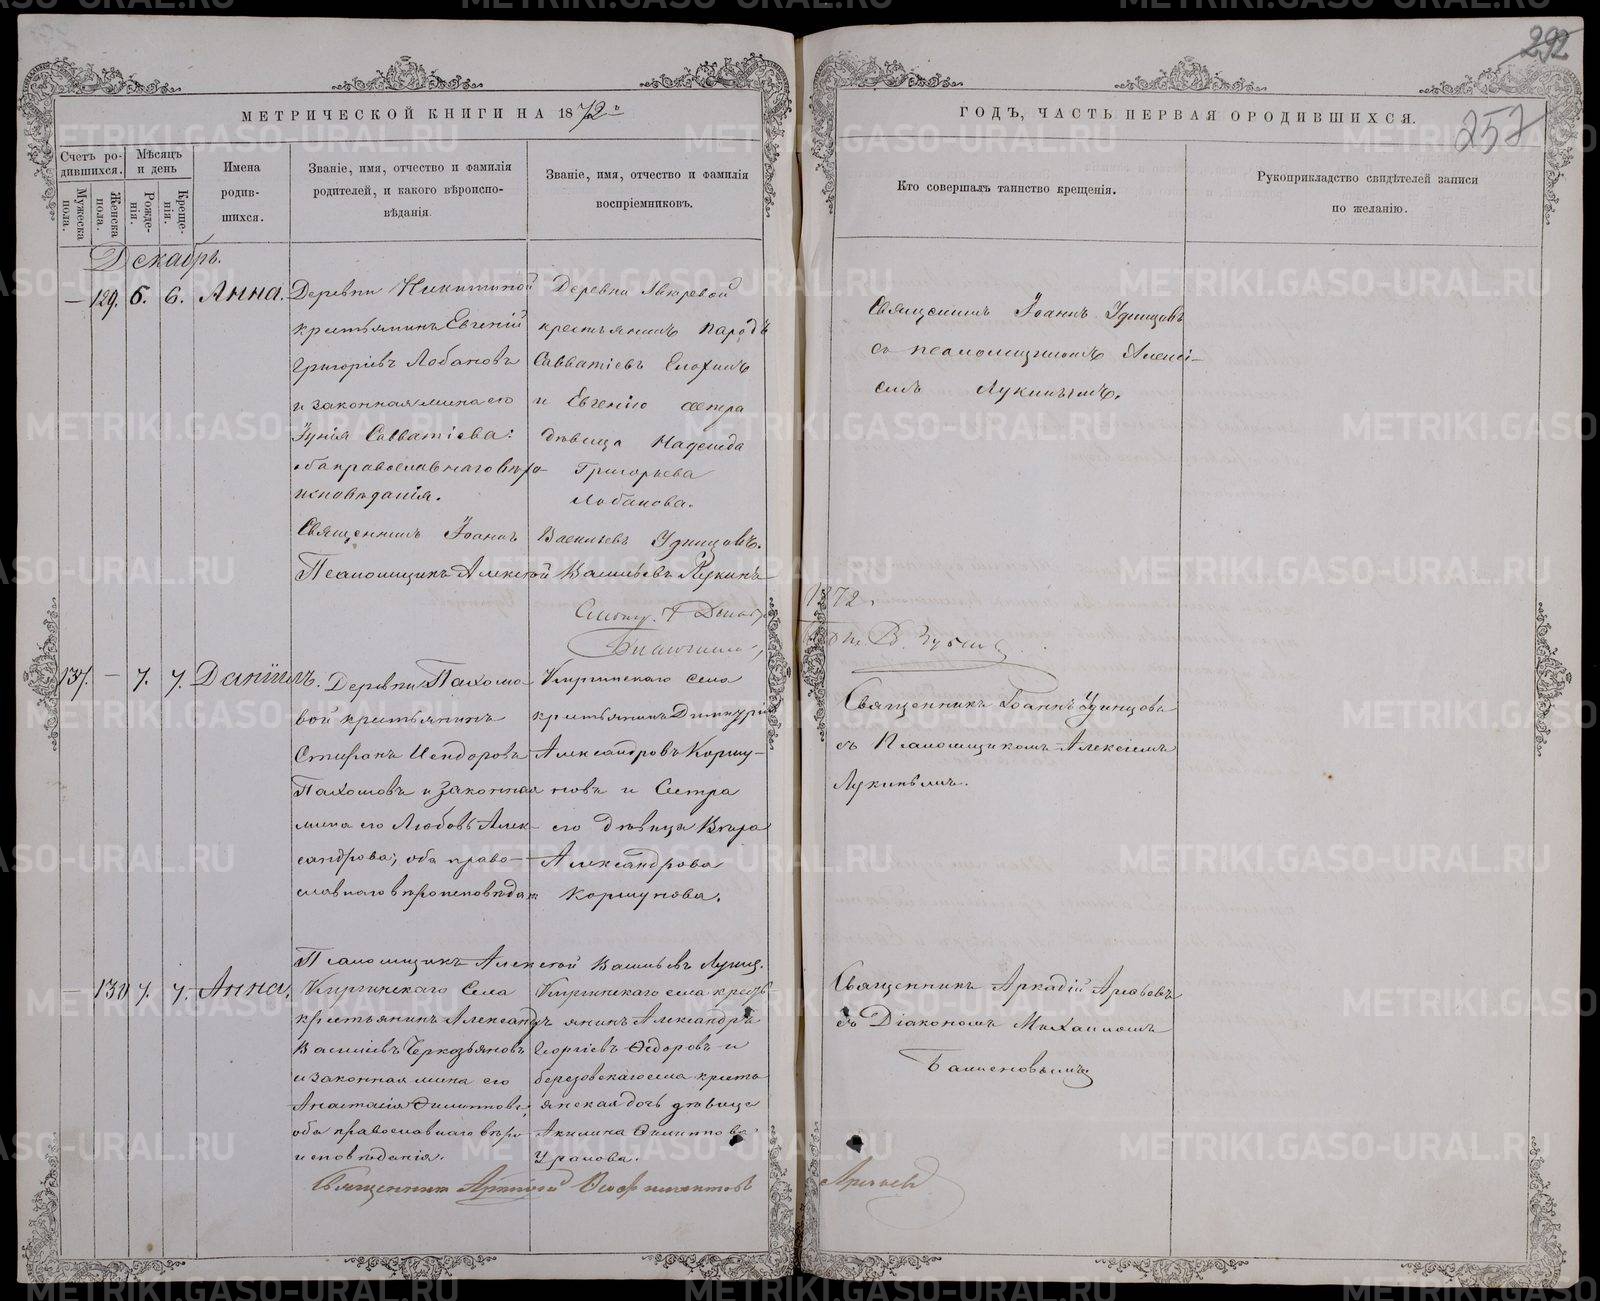 292
257
МЕТРИЧЕСКОЙ КНИГИ НА 1872й
ГОДЪ, ЧАСТЬ ПЕРВАЯ О РОДИВШИХСЯ.
Счетъ ро-
дившихся.
Мужеска
пола.
Женска
пола.
Мѣсяцъ
и день
Рожде-
нія.
Креще-
нія.
Имена
родив-
шихся.
Званіе, имя, отчество и фамилія
родителей, и какого вѣроиспо-
вѣданія.
Званіе, имя, отчество и фамилія
воспріемниковъ.
Кто совершалъ таинство крещенія.
Рукоприкладство свидѣтелей записи
по желанію.
Декабрь.
— 129. 6. 6. Анна.
Деревни Никитиной
крестьянинъ Евгеній
Григоріевъ Лобановъ
и законная жена его
Савватіева:
оба православнаго вѣро-
исповѣданія.
Деревни
крестьянинъ
Савватіевъ Елохинъ
и Евгенію сестра
дѣвица Надежда
Григорьева
Лобанова.
Священникъ Іоаннъ Удинцовъ
съ псаломщикомъ Алексі-
емъ Лукинымъ.
Священникъ Іоаннъ Васильевъ Удинцовъ.
Псаломщикъ Алексѣй Васильевъ Лукинъ
1872.
137. — 7. 7. Даніилъ.
Деревни Пахомо-
вой крестьянинъ
Стефанъ Исидоровъ
Пахомовъ и законная
жена его Любовь Алек-
сандрова; оба право-
славнаго вѣроисповѣдан.
Киргинскаго села
крестьянинъ Димитрій
Александровъ Коршу-
новъ и Сестра
его дѣвица Вѣра
Александрова
Коршунова.
Священникъ Іоаннъ Удинцовъ
съ Псаломщикомъ Алексіемъ
Лукинымъ.
Псаломщикъ Алексѣй Васильевъ Лукин.
— 130 7. 7. Анна.
Киргинскаго Села
крестьянинъ Александръ
Василіевъ Черкозьяновъ
и законная жена его
Анастасія Филиппова,
оба православнаго вѣро-
исповѣданія.
Киргинскаго села кресть
янинъ Александръ
Георгіевъ Ѳедоровъ и
березовскаго села кресть
янская дочь дѣвица
Акилина Филиппова
Уралова.
Священникъ Аркадій Арефьевъ
съ Діакономъ Михаиломъ
Священникъ
Арефьевъ